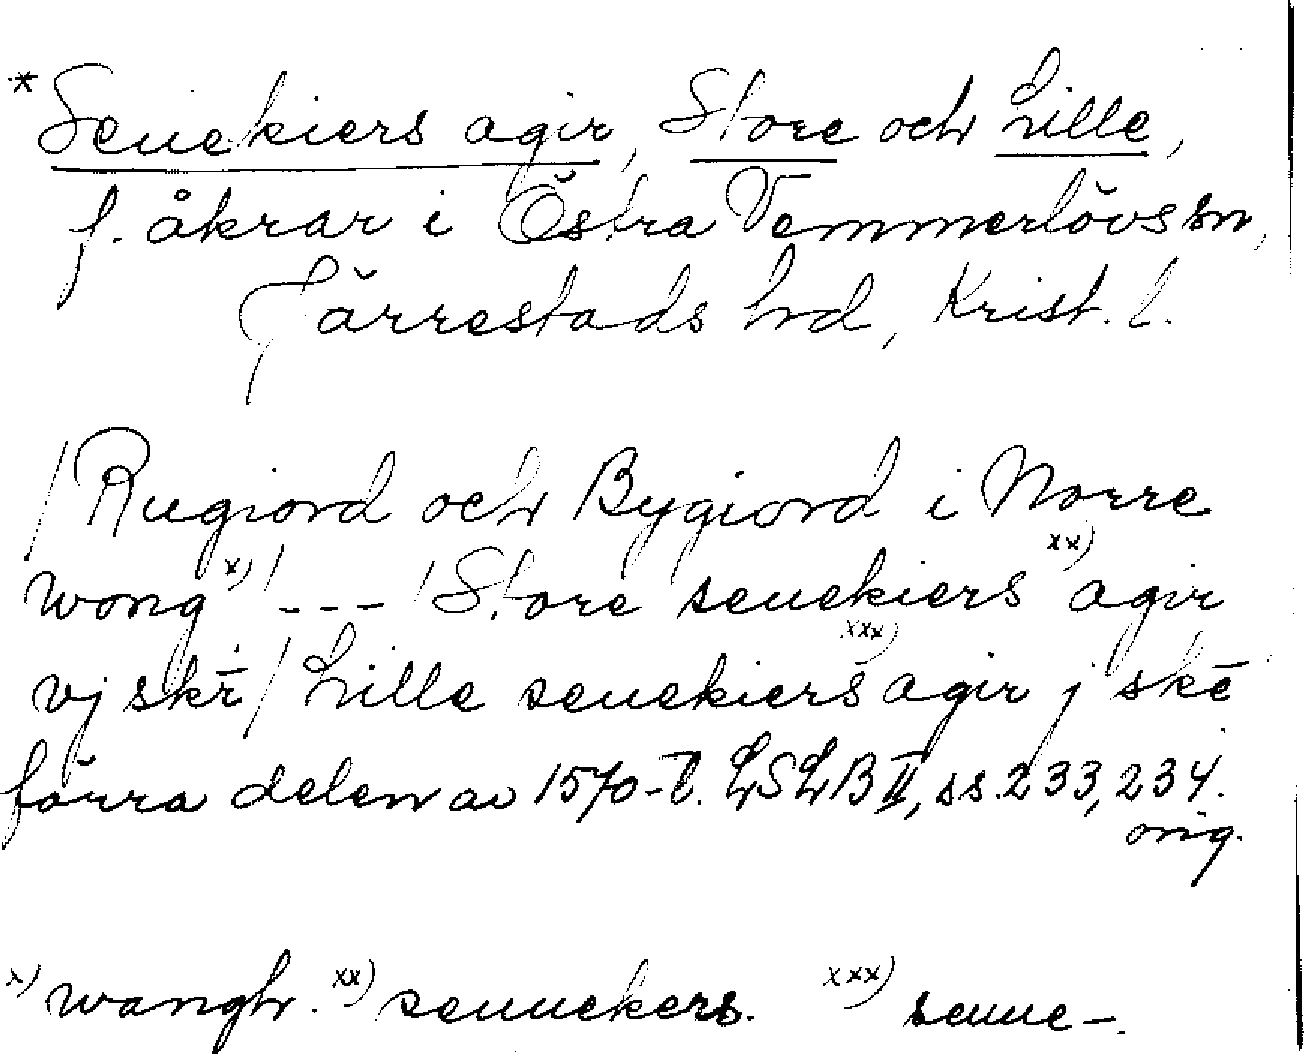 * Seuekiers agir, Store och Lille,
f. åkrar i Östra Vemmerlövs sn,
Järrestads hd, Krist. l.
/Rugiord och Bygiord i Norre
wong x) / --- / Store seuekiers xx) agir
vj skr̄ / Lille seuekiers xxx) agir j skē
förra delen av 1570-t. LSLB II, ss. 233, 234.
orig.
x) wangh. xx) seuuekers. xxx) seuue-.